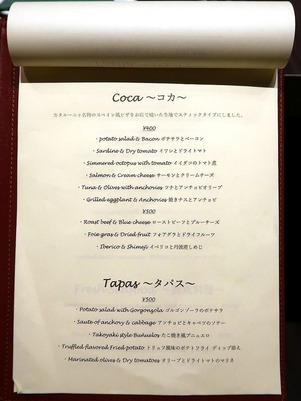 Coca ～コカ～
カタルーニャ名物のスペイン風ピザをお店で焼いた生地でスティックタイプにしました。
¥400
・potato salad & Bacon ポテサラとベーコン
・Sardine & Dry tomato イワシとドライトマト
・Simmered octopus with tomato イイダコのトマト煮
・Salmon & Cream cheese サーモンとクリームチーズ
・Tuna & Olives with anchovies ツナとアンチョビオリーブ
・Grilled eggplant & Anchovies 焼きナスとアンチョビ
¥500
・Roast beef & Blue cheese ローストビーフとブルーチーズ
・Foie gras & Dried fruit フォアグラとドライフルーツ
・Iberico & Shimeji イベリコと丹波産しめじ
Tapas ～タパス～
¥500
・Potato salad with Gorgonzola ゴルゴンゾーラのポテサラ
・Saute of anchovy & cabbage アンチョビとキャベツのソテー
・Takoyaki style Buñuelos たこ焼き風ブニュエロ
・Truffled flavored Fried potato トリュフ風味のポテトフライ ディップ添え
・Marinated olives & Dry tomatoes オリーブとドライトマトのマリネ